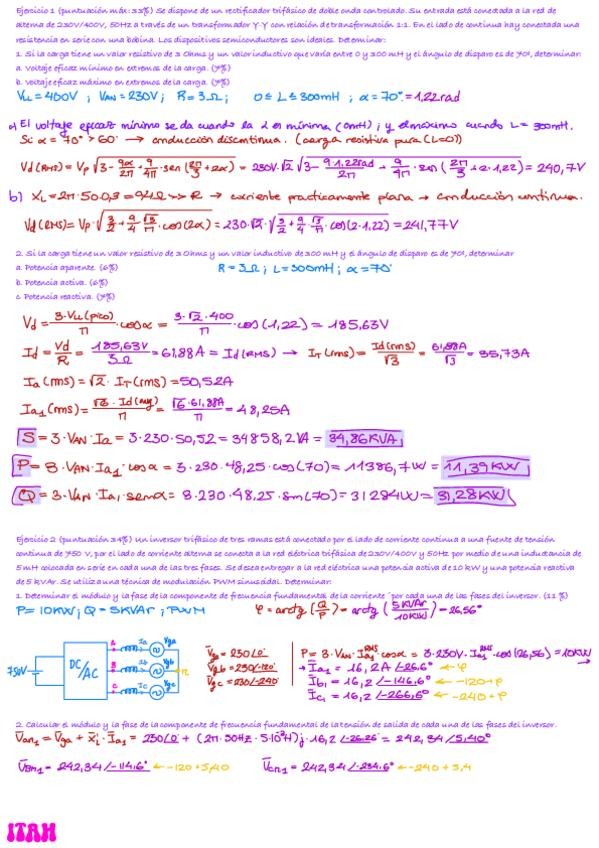 Ejercicio 1 (puntuación máx: 33%) Se dispone de un rectificador trifásico de doble onda controlado. Su entrada está conectada a la red de
alterna de 230V/400V, 50Hz a través de un transformador Y Y con relación de transformación 1:1. En el lado de continua hay conectada una
resistencia en serie con una bobina. Los dispositivos semiconductores son ideales. Determinar:
1. Si la carga tiene un valor resistivo de 3 Ohms y un valor inductivo que varía entre 0 y 300 mH y el ángulo de disparo es de 70º, determinar:
a. Voltaje eficaz mínimo en extremos de la carga. (7%)
b. Voltaje eficaz máximo en extremos de la carga. (7%)
VLL = 400V ; VAN = 230V ; R = 3Ω ; 0 ≤ L ≤ 300mH ; α = 70° = 1,22 rad
a) El voltaje eficaz mínimo se da cuando la L es mínima (0mH) ; y el máximo cuando L = 300mH.
Si α = 70° > 60° → conducción discontinua. (carga resistiva pura (L=0))
Vd(RMS) = Vp √(3 - 9α/2π + 9/4π · sen(2π/3 + 2α)) = 230V·√2 √(3 - 9·1,22rad/2π + 9/4π · sen(2π/3 + 2·1,22)) = 240,7V
b) XL = 2π·50·0,3 = 94Ω >> R → corriente practicamente plana → conducción continua.
Vd(RMS) = Vp·√(3/2 + 9/4 · √3/π · cos(2α)) = 230·√2·√(3/2 + 9/4 · √3/π · cos(2·1,22)) = 241,77V
2. Si la carga tiene un valor resistivo de 3 Ohms y un valor inductivo de 300 mH y el ángulo de disparo es de 70º, determinar
a. Potencia aparente. (6%)
R = 3Ω ; L = 300mH ; α = 70°
b. Potencia activa. (6%)
c. Potencia reactiva. (7%)
Vd = 3·VLL(pico)/π · cosα = 3·√2·400/π · cos(1,22) = 185,63V
Id = Vd/R = 185,63V/3Ω = 61,88A = Id(RMS) → IT(rms) = Id(rms)/√3 = 61,88A/√3 = 35,73A
Ia(rms) = √2 · IT(rms) = 50,52A
Ia1(rms) = √6 · Id(avg)/π = √6·61,88A/π = 48,25A
S = 3·VAN·Ia = 3·230·50,52 = 34858,2VA = 34,86KVA
P = 3·VAN·Ia1·cosα = 3·230·48,25·cos(70) = 11386,7W = 11,39KW
Q = 3·VAN·Ia1·senα = 3·230·48,25·sen(70) = 31284W = 31,28KW
Ejercicio 2 (puntuación 34%) un inversor trifásico de tres ramas está conectado por el lado de corriente continua a una fuente de tensión
continua de 750 V, por el lado de corriente alterna se conecta a la red eléctrica trifásica de 230V/400V y 50Hz por medio de una inductancia de
5mH colocada en serie en cada una de las tres fases. Se desea entregar a la red eléctrica una potencia activa de 10 kW y una potencia reactiva
de 5 kVAr. Se utiliza una técnica de modulación PWM sinusoidal. Determinar:
1. Determinar el módulo y la fase de la componente de frecuencia fundamental de la corriente por cada una de las fases del inversor. (11 %)
P = 10KW ; Q = 5KVAr ; PWM
φ = arctg(Q/P) = arctg(5KVAr/10KW) = 26,56°
750V
DC/AC
A Ia Vga
B Ib Vgb
C Ic Vgc
n
Vga = 230∠0°
Vgb = 230∠-120°
Vgc = 230∠-240°
P = 3·VAN·Ia1 RMS·cosα = 3·230V·Ia1 RMS·cos(26,56) = 10KW
→ Ia1 = 16,2A ∠-26.6° ← -φ
Ib1 = 16,2 ∠-146.6° ← -120-φ
Ic1 = 16,2 ∠-266,6° ← -240-φ
2. Calcular el módulo y la fase de la componente de frecuencia fundamental de la tensión de salida de cada una de las fases del inversor.
Van1 = Vga + XL·Ia1 = 230∠0 + (2π·50Hz·5·10⁻³H)j·16,2∠-26.26° = 242,34∠5,40°
Vbn1 = 242,34∠-114.6° ← -120+5,40
Vcn1 = 242,34∠-234.6° ← -240+5,4
ITAH